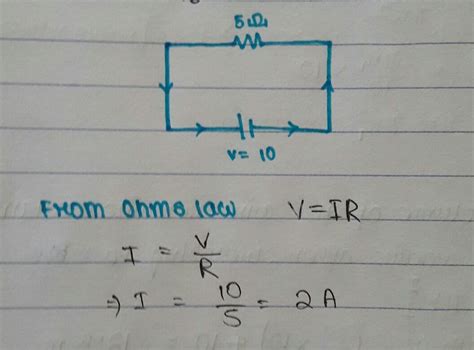 5Ω
V= 10
From Ohms law V=IR
I = V/R
⇒ I = 10/5 = 2A